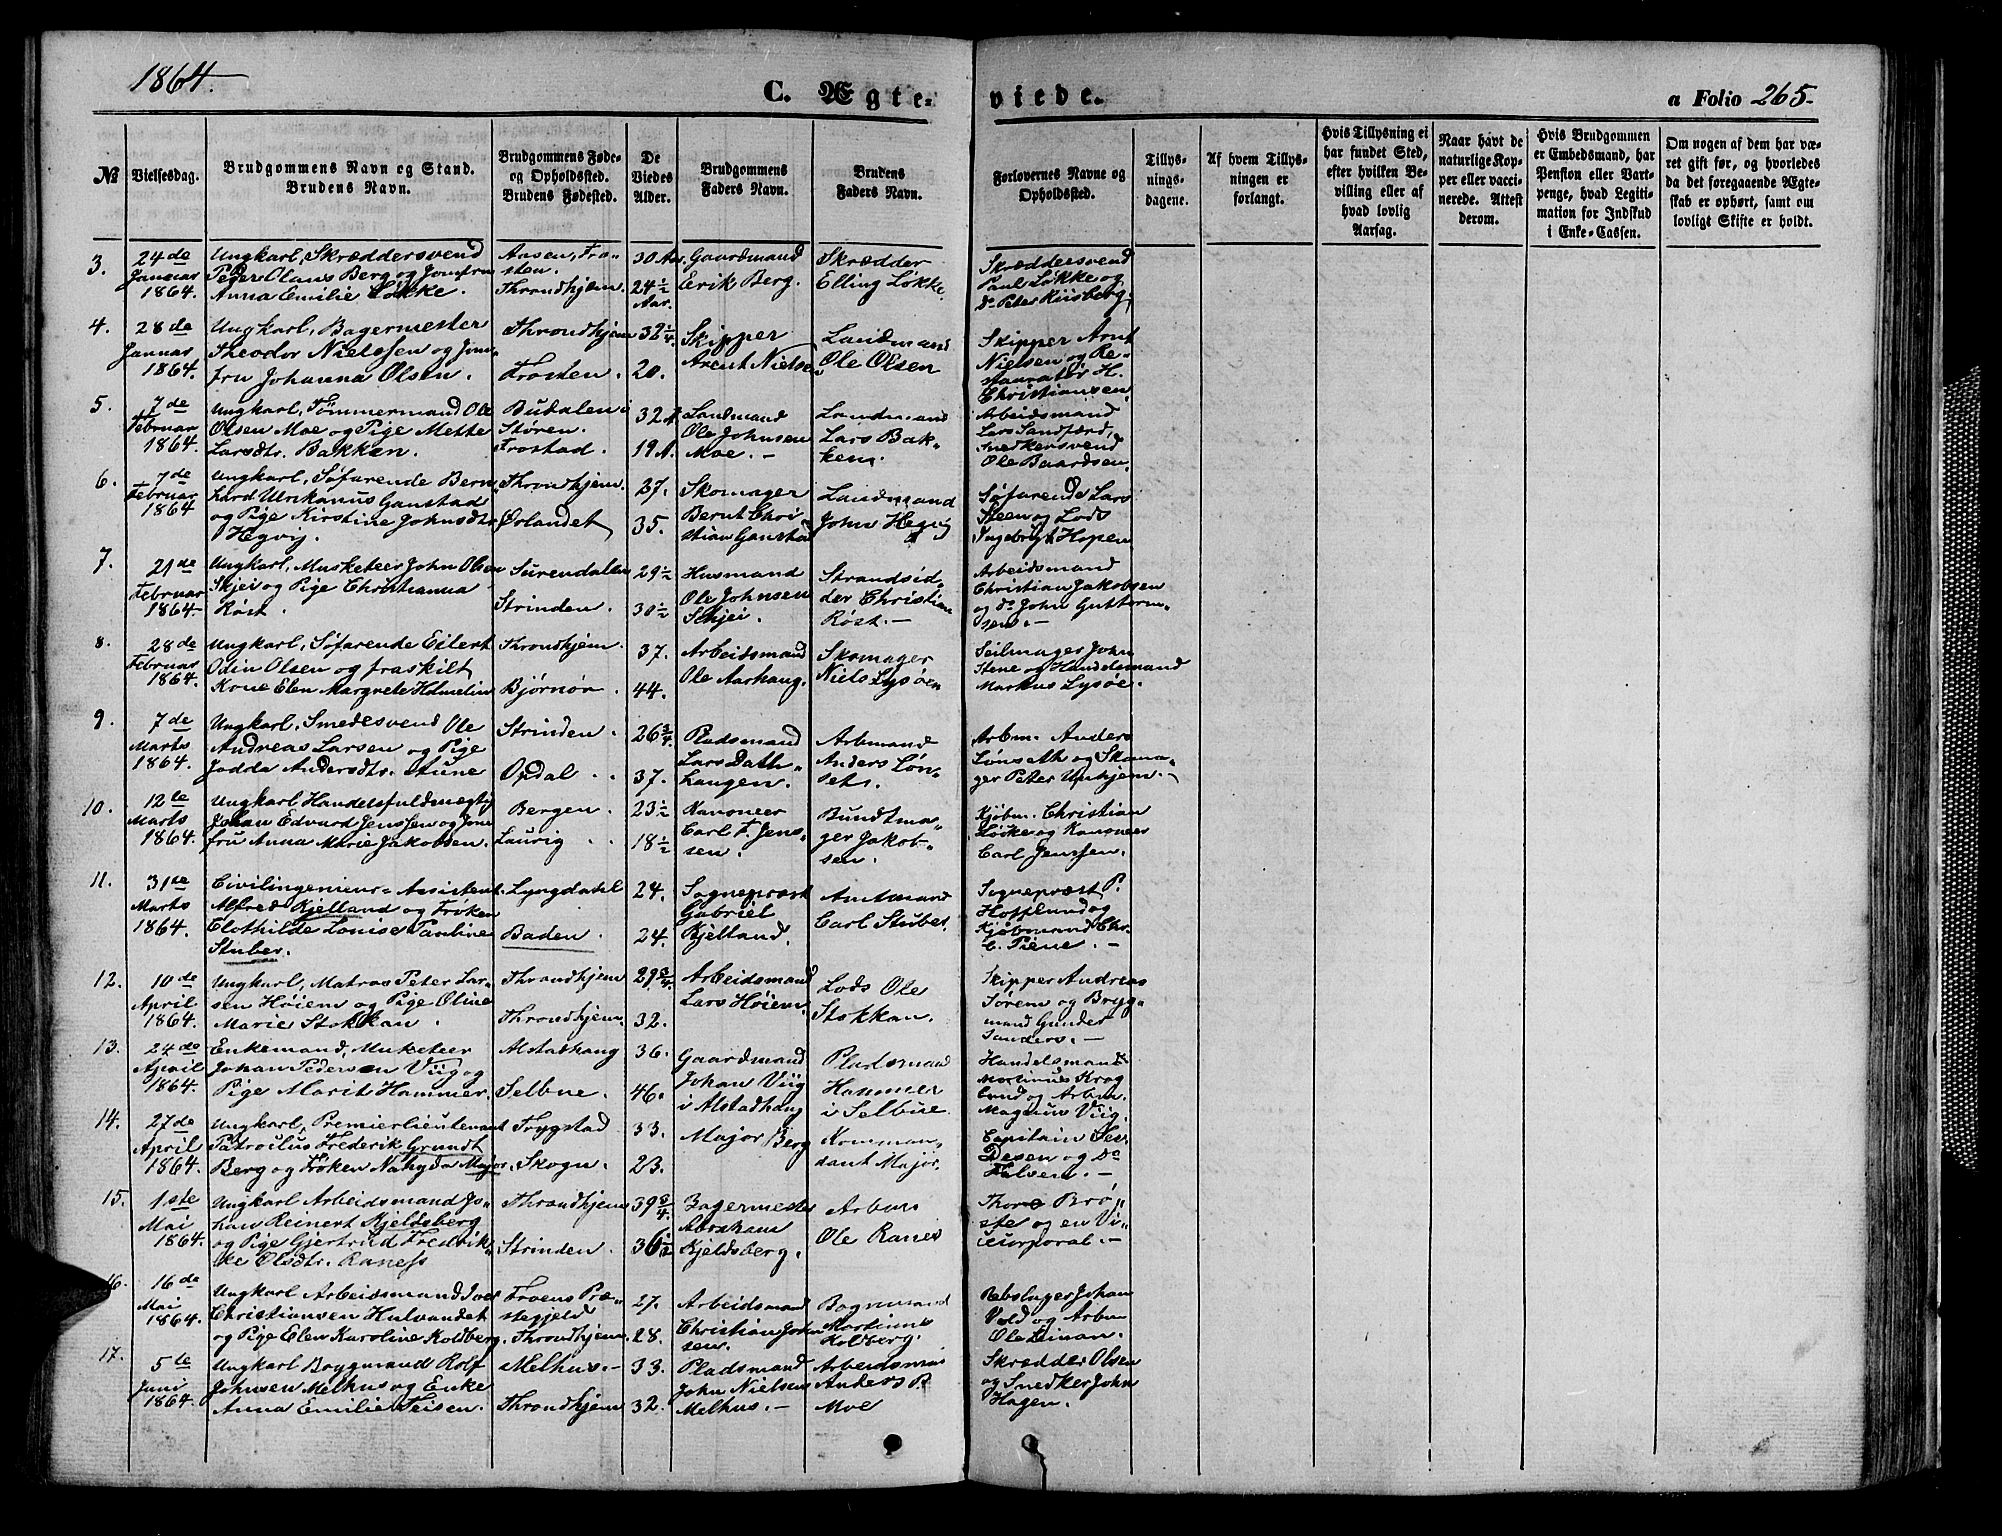 1864.
C. Ægte-
viede.
a Folio 265.
№
Vielsesdag.
Brudgommens Navn og Stand.
Brudens Navn.
Brudgommens Føde-
og Opholdssted.
Brudens Fødested.
De
Viedes
Alder.
Brudgommens
Faders Navn.
Brudens
Faders Navn.
Forlovernes Navne og
Opholdssted.
Tillys-
nings-
dagene.
Af hvem Tillys-
ningen er
forlangt.
Hvis Tillysning ei
har fundet Sted,
efter hvilken Be-
villing eller af
hvad lovlig
Aarsag.
Naar havt de
naturlige Kop-
per eller vacci-
nerede. Attest
derom.
Hvis Brudgommen
er Embedsmand, har
Pension eller Vart-
penge, hvad Legiti-
mation for Indskud
i Enke-Cassen.
Om nogen af dem har væ-
ret gift før, og hvorledes
da det foregaaende Ægte-
skab er ophørt, samt om
lovligt Skifte er holdt.
3.
24de
Januar
1864.
Ungkarl, Skræddersvend
Peder Olaus Berg og Jomfru
Anna Emilie Løkke.
Aasen, Fro-
sten.
Throndhjem
30 Aar.
24½
Aar.
Gaardmand
Erik Berg.
Skrædder
Elling Løkke.
Skræddersvend
Paul Løkke og
do Peter Kiisberg.
4.
28de
Januar
1864.
Ungkarl, Bagermester
Theodor Nielssen og Jom-
fru Johanna Olsen.
Throndhjem
Frosten.
32¼
20.
Skipper
Arent Nielsen
Landmand
Ole Olsen
Skipper Arnt
Nielsen og Re-
stauratør H.
Christiansen.
5.
7de
Februar
1864.
Ungkarl, Tømmermand Ole
Olsen Moe og Pige Mette
Larsdtr. Bakken.
Budalen i
Støren.
Frostad.
32 A.
19 A.
Landmand
Ole Johnsen
Moe. –
Landmand
Lars Bak-
ken.
Arbeidsmand
Lars Sandfærd,
Snedkersvend
Ole Baardsen.
6.
7de
Februar
1864
Ungkarl, Søfarende Bern-
hard Urikanus Ganstad
og Pige Kirstine Johnsdtr.
Hegvig.
Throndhjem.
Ørlandet
27.
35.
Skomager
Bernt Chri
stian Ganstad
Landmand
John Hegvig
Søfarende Lars
Steen og Lods
Ingebrigt Hopen
7.
21de
Februar
1864
Ungkarl, Musketeer John Olsen
Skjei og Pige Christianna
Røst.
Surendalen
Strinden.
29½
30½
Husmand
Ole Johnsen
Schjei.
Strandsid-
der Christian
Røst. –
Arbeidsmand
Christian Jakobsen
og do John Guttorm-
sen. –
8.
28de
Februar
1864.
Ungkarl, Søfarende Eilert
Odin Olsen og fraskilt
Kone Elen Margrete Holmelin
Throndhjem.
Bjørnør.
37.
44.
Arbeidsmand
Ole Aarhaug.
Skomager
Niels Lysøen
Seilmager John
Stene og Handelsmand
Markus Lysøe.
9.
7de
Marts
1864.
Ungkarl, Smedesvend Ole
Andreas Larsen og Pige
Jodda Andersdtr. Aune
Strinden.
Opdal.
26¾
37.
Pladsmand
Lars Dath-
haugen.
Arbmand
Anders Løn-
set.
Arbm. Anders
Lønseth og Skoma-
ger Peter Umhjem. –
10.
12te
Marts
1864.
Ungkarl Handelsfuldmægtig
Johan Edvard Jenssen og Jom
fru Anna Marie Jakobsen.
Bergen.
Laurig
23½
18½
Kanoneer
Carl F. Jens-
sen.
Bundtma-
ger Jakob-
sen.
Kjøbm. Christian
Løcke og Kanoneer
Carl Jenssen.
11.
31te
Marts
1864.
Civilingeniør-Assistent
Alfred Kjelland og Frøken
Clothilde Louise Pauline
Stuber.
Lyngdahl
Baden.
24.
24.
Sognepræst
Gabriel
Kjelland.
Amtmand
Carl Stuber.
Sognepræst P.
Hofflund og
Kjøbmand Chr.
C. Piene. –
12.
10de
April
1864.
Ungkarl, Matros Peter Lar-
sen Høiem og Pige Oline
Marie Stokkan.
Throndhjem
Throndhjem.
29¾
32.
Arbeidsmand
Lars Høiem.
Lods Ole
Stokkan.
Skipper Andreas
Sørem og Bryg-
mand Gunder
Sanders. –
13.
24de
April
1864.
Enkemand, Musketeer
Johan Pedersen Viig og
Pige Marit Hammer.
Alstadhaug
Selbue.
36.
46.
Gaardmand
Johan Viig
i Alstadhaug
Pladsmand
Hammer
i Selbue.
Handelsmand
Martinus Krog
lund og Arbm.
Magnus Viig.
14.
27de
April
1864.
Ungkarl, Premierlieutenant
Patroclus Frederik Grundt
Berg og Frøken Nahyda Major.
Trygstad.
Skogn.
33.
23.
Major Berg
Komman-
dant Major.
Capitain See-
Desen og Do
Falsen. –
15.
1ste
Mai
1864.
Ungkarl Arbeidsmand Jo-
han Reinert Kjeldsberg
og Pige Gjertrud Fredrik-
ke Olsdtr. Raness
Throndhjem
Strinden.
39¾
36½
Bagermester
Abraham
Kjeldsberg.
Arbm.
Ole Ranes
Thore Brø-
ste og en Vi-
cecorporal. –
16.
16de
Mai
1864.
Ungkarl Arbeidsmand Iver
Christiansen Hulvandet
og Pige Elen Karoline Koldberg.
Froens Præ-
stegjeld
Throndhjem
27.
28.
Arbeidsmand
Christian John
sen.
Bogmand
Martinus
Kolberg.
Rebslager Johan
Vold og Arbm
Ole Leinan.
17.
5te
Juni
1864.
Ungkarl Brygmand Rolf
Johnsen Melhus og Enke
Anna Emilie Teisen.
Melhus. –
Throndhjem
33.
32.
Pladsmand
John Nielsens
Melhus. –
Arbeidsm.
Anders P.
Moe
Skrædder Olsen
og Snedker John
Hagen.